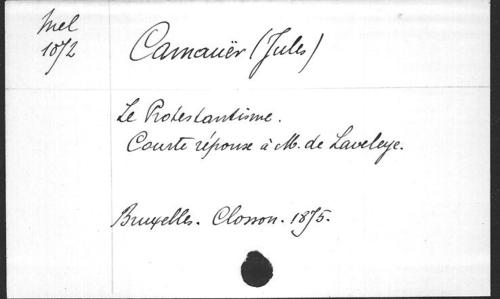 Mel
1072
Camauër (Jules)
Le Protestantisme.
Courte réponse à M. de Laveleye.
Bruxelles. Closson. 1875.